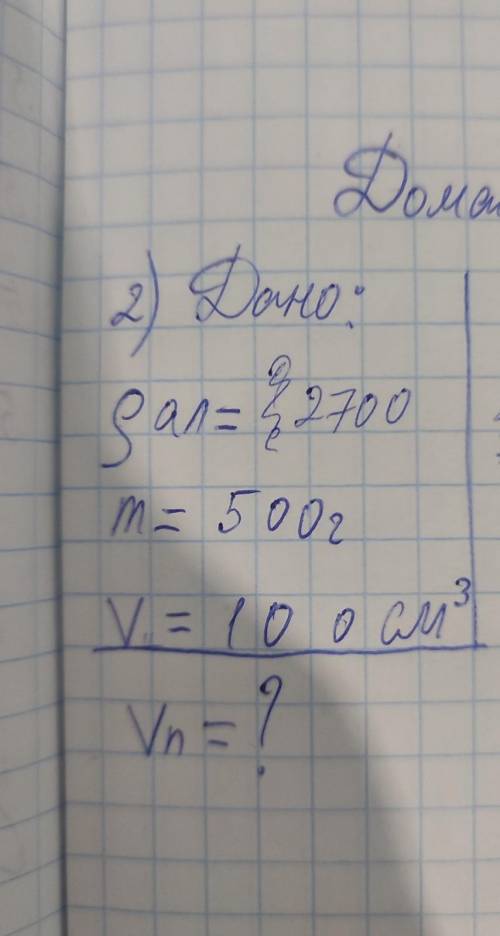 Дома
2) Дано:
ρал = 2700
m = 500г
V = 100 см³
Vп = ?